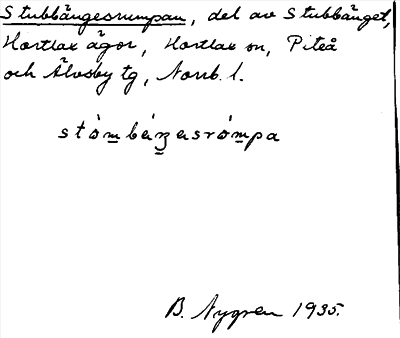 Stubbängesrumpan, del av Stubbänget,
Hortlax ägor, Hortlax sn, Piteå
och Älvsby tg, Norrb. l.
stòm̲bàŋ̲ɐsròm̲pa
B. Nygren 1935.